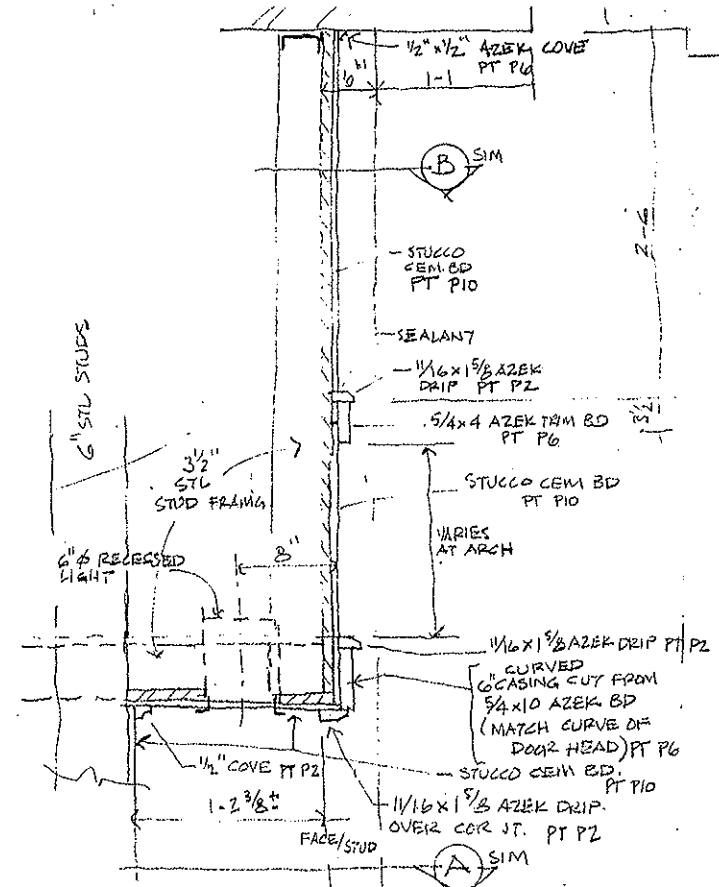 1/2" x 1/2" AZEK COVE
PT P6
6"
1-1
B
SIM
2-6
STUCCO
CEM. BD
PT P10
SEALANT
11/16 x 1 5/8 AZEK
DRIP PT P2
5/4 x 4 AZEK TRIM BD
PT P6
3 1/2
6" STL STUDS
3 1/2"
STL
STUD FRAMG
STUCCO CEM BD
PT P10
VARIES
AT ARCH
8"
6" Ø RECESSED
LIGHT
11/16 x 1 5/8 AZEK DRIP PT P2
CURVED
6" CASING CUT FROM
5/4 x 10 AZEK BD
(MATCH CURVE OF
DOOR HEAD) PT P6
1/2" COVE PT P2
STUCCO CEM BD.
PT P10
1-2 3/8" ±
11/16 x 1 5/8 AZEK DRIP.
OVER COR JT. PT P2
FACE/STUD
A
SIM